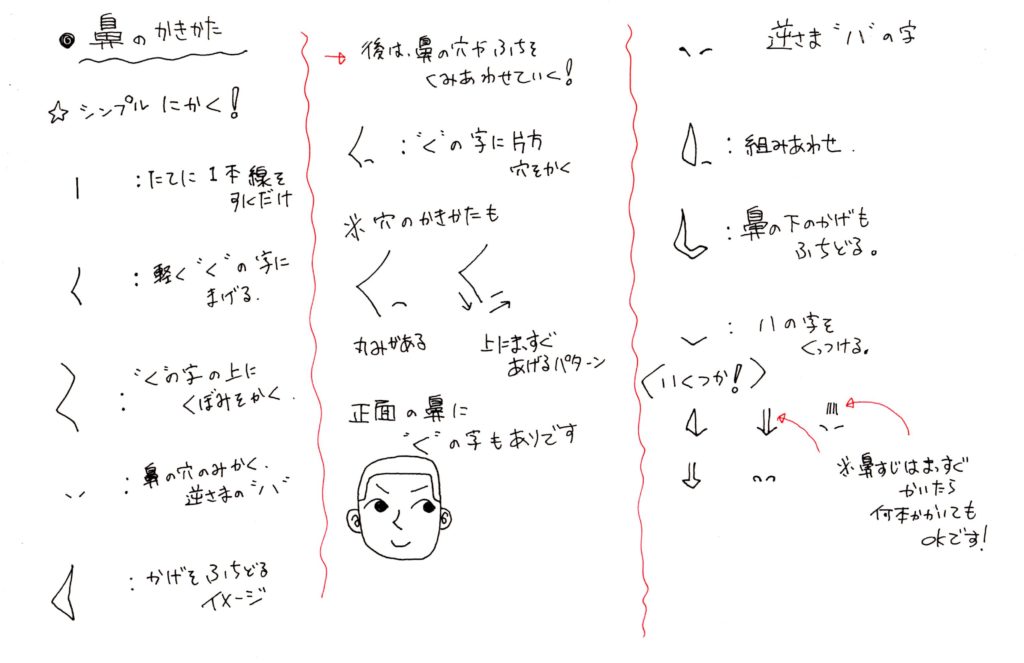 鼻のかきかた
☆シンプルにかく!
:たてに1本線を
引くだけ
:軽く"く"の字に
まげる.
:"く"の字の上に
くぼみをかく.
:鼻の穴のみかく.
逆さまの"ハ"
:かげをふちどる
イメージ
→後は、鼻の穴やふちを
くみあわせていく!
:"く"の字に片方
穴をかく
※穴のかきかたも
丸みがある
上にまっすぐ
あげるパターン
正面の鼻に
"く"の字もありです
逆さま"ハ"の字
:組みあわせ.
:鼻の下のかげも
ふちどる。
:ハの字を
くっつける。
〈いくつか!〉
※鼻すじはまっすぐ
かいたら
何本かかいても
OKです!